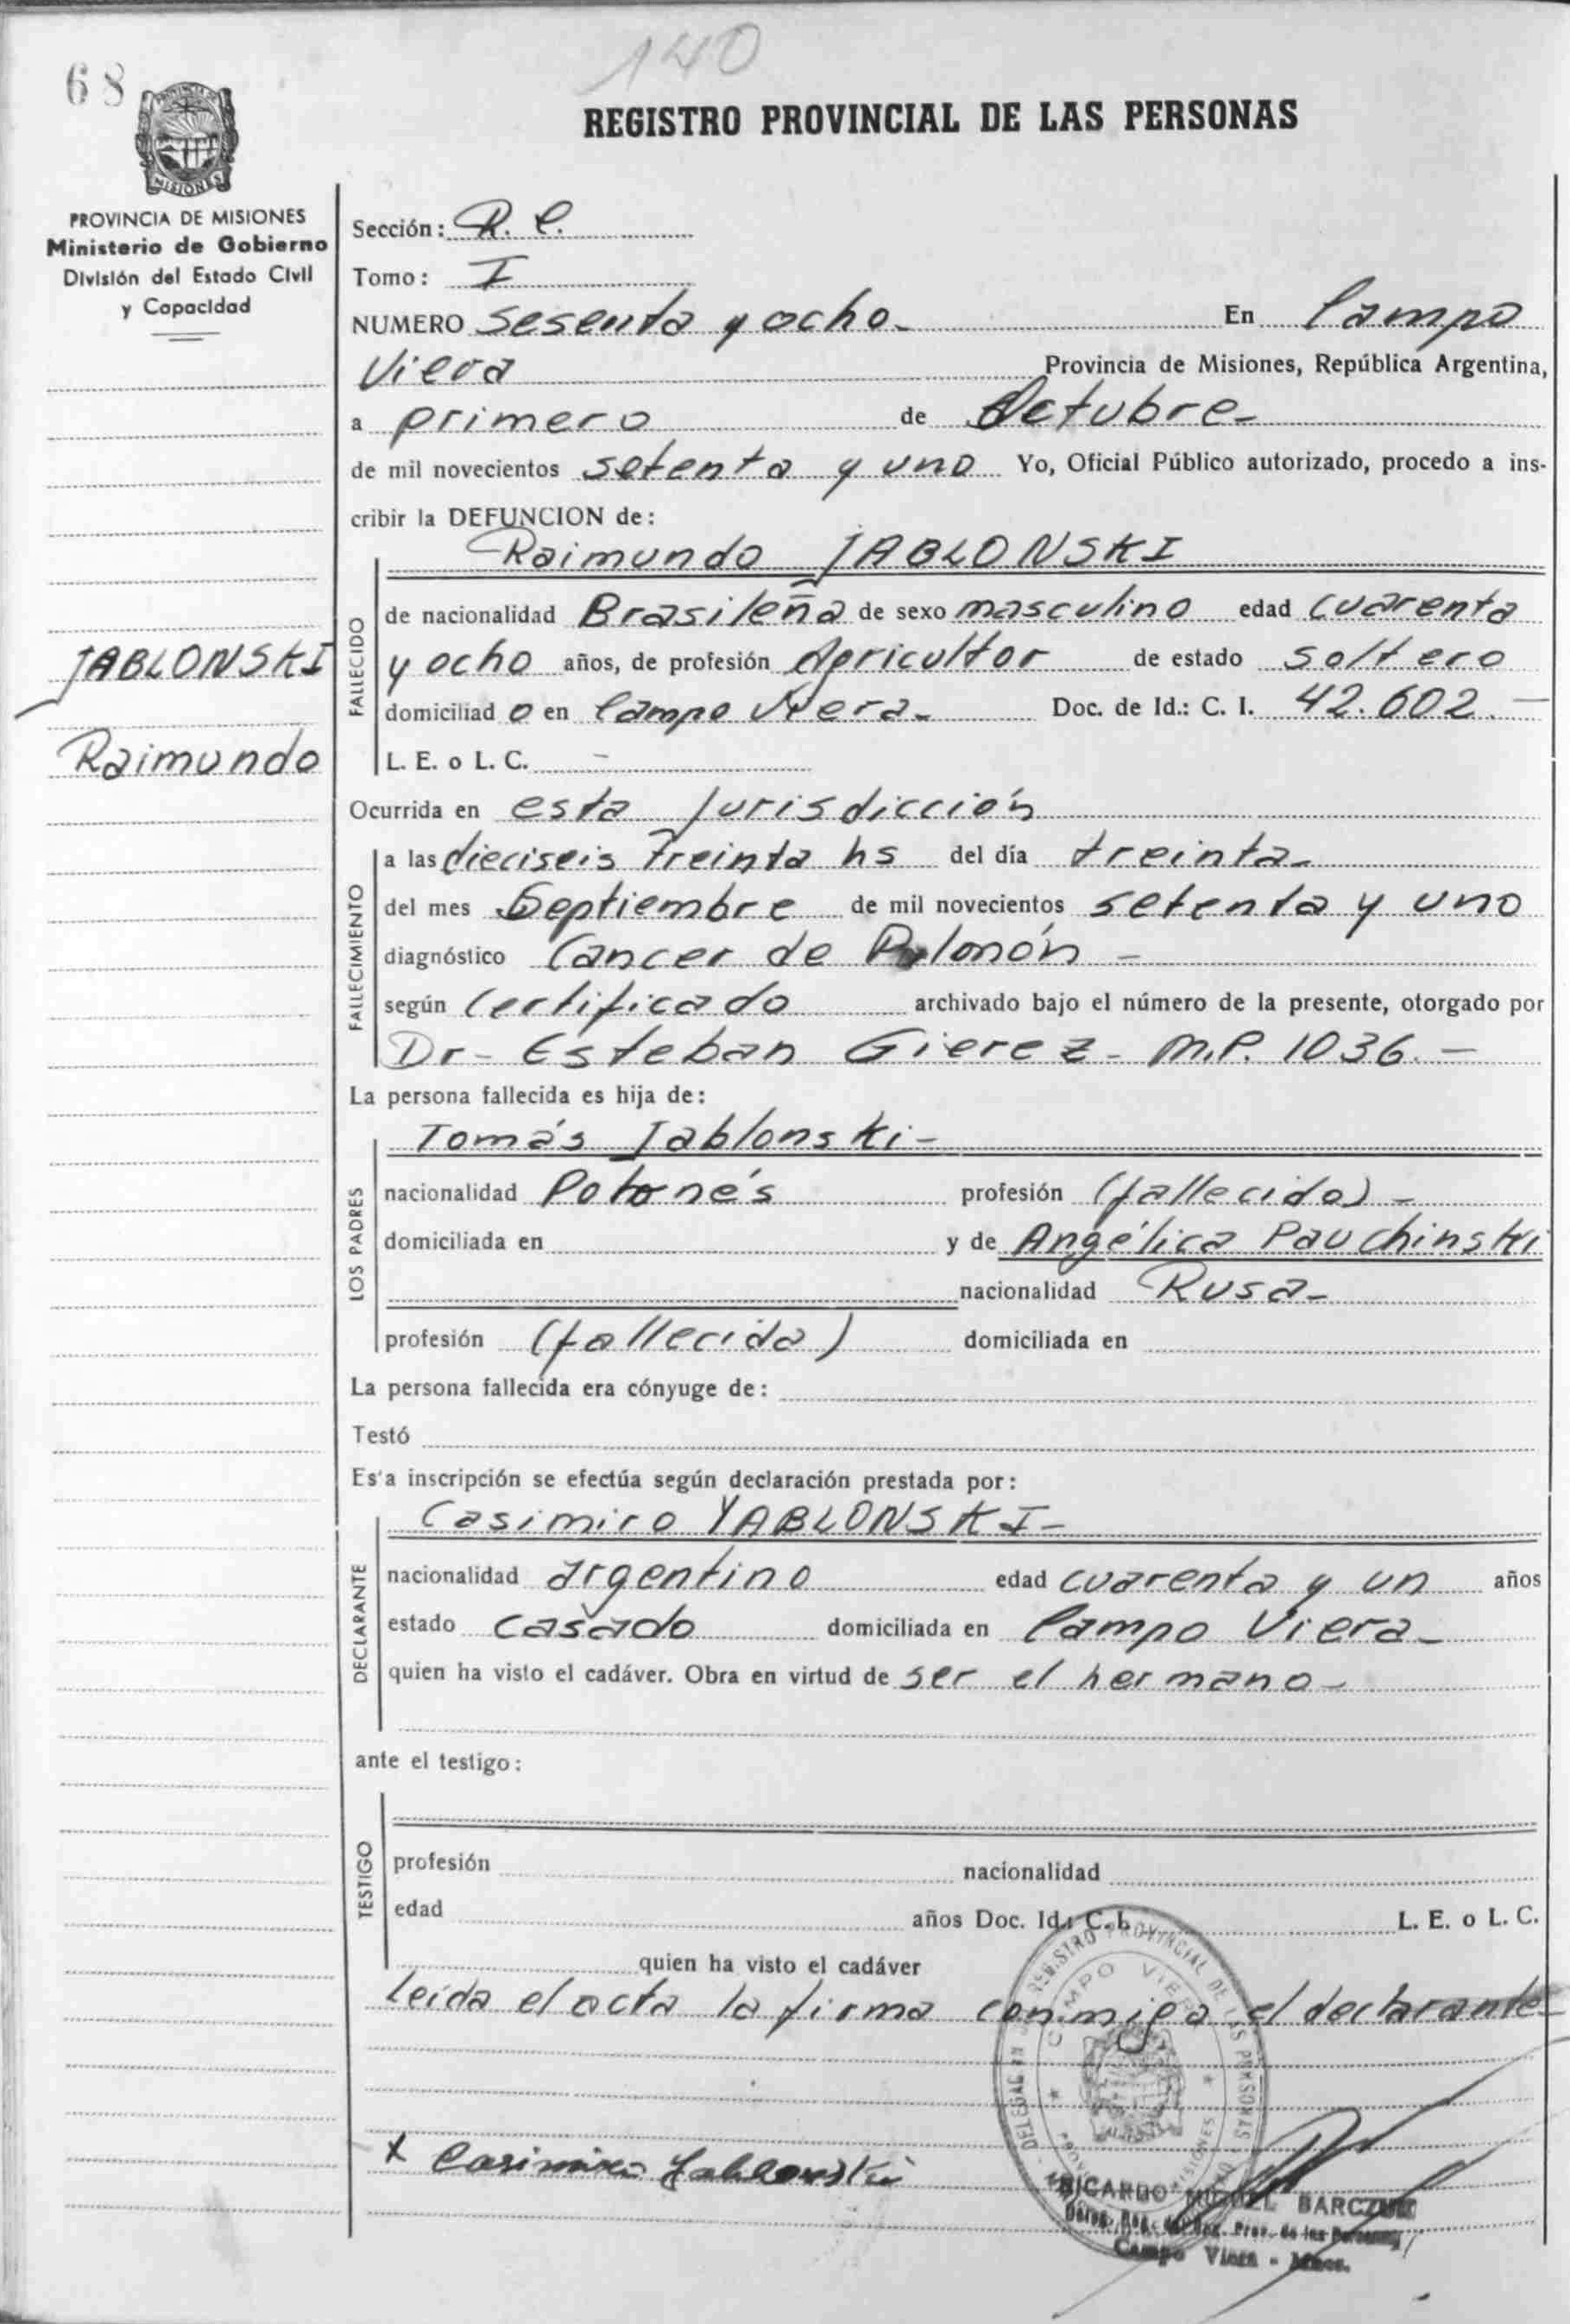 140
68
REGISTRO PROVINCIAL DE LAS PERSONAS
MISIONES
PROVINCIA DE MISIONES
Ministerio de Gobierno
División del Estado Civil
y Capacidad
JABLONSKI
Raimundo
Sección: R. C.
Tomo: I
NUMERO sesenta y ocho En Campo
Viera Provincia de Misiones, República Argentina,
a primero de Octubre
de mil novecientos setenta y uno Yo, Oficial Público autorizado, procedo a ins-
cribir la DEFUNCION de:
Raimundo JABLONSKI
FALLECIDO
de nacionalidad Brasileña de sexo masculino edad cuarenta
y ocho años, de profesión Agricultor de estado soltero
domiciliad o en Campo Viera Doc. de Id.: C. I. 42.602.-
L. E. o L. C. -
Ocurrida en esta Jurisdicción
FALLECIMIENTO
a las dieciseis treinta hs del día treinta
del mes Septiembre de mil novecientos setenta y uno
diagnóstico Cancer de Pulmón -
según Certificado archivado bajo el número de la presente, otorgado por
Dr- Esteban Gierez- M.P. 1036.-
La persona fallecida es hija de:
LOS PADRES
Tomás Jablonski-
nacionalidad Polonés profesión (fallecido)-
domiciliada en y de Angélica Pauchinski
nacionalidad Rusa-
profesión (fallecida) domiciliada en
La persona fallecida era cónyuge de:
Testó
Es'a inscripción se efectúa según declaración prestada por:
DECLARANTE
Casimiro YABLONSKI-
nacionalidad argentino edad cuarenta y un años
estado casado domiciliada en Campo Viera-
quien ha visto el cadáver. Obra en virtud de ser el hermano-
ante el testigo:
TESTIGO
profesión nacionalidad
edad años Doc. Id.: C. I. L. E. o L. C.
quien ha visto el cadáver
Leida el acta la firma conmigo el declarante-
DELEGACION REGISTRO PROVINCIAL DE LAS PERSONAS
CAMPO VIERA
MISIONES
x Casimiro Jablonski
RICARDO MIGUEL
Campo Viera - Mnes.